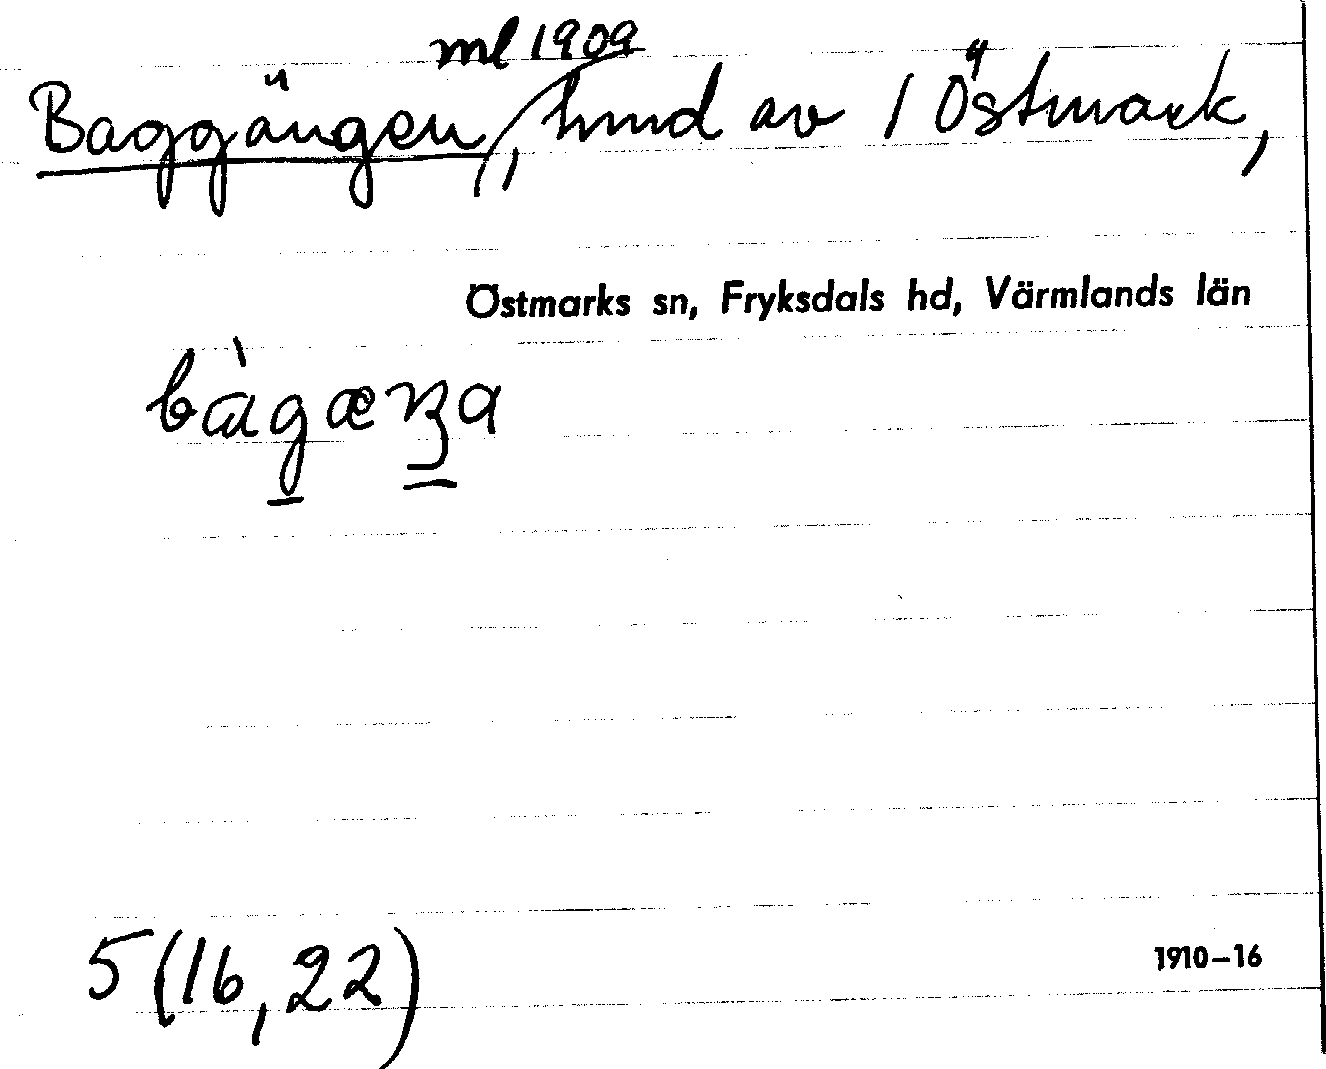 ml 1909
Baggängen, hmd av 1 Östmark,
Östmarks sn, Fryksdals hd, Värmlands län
5 (16, 22)
1910–16